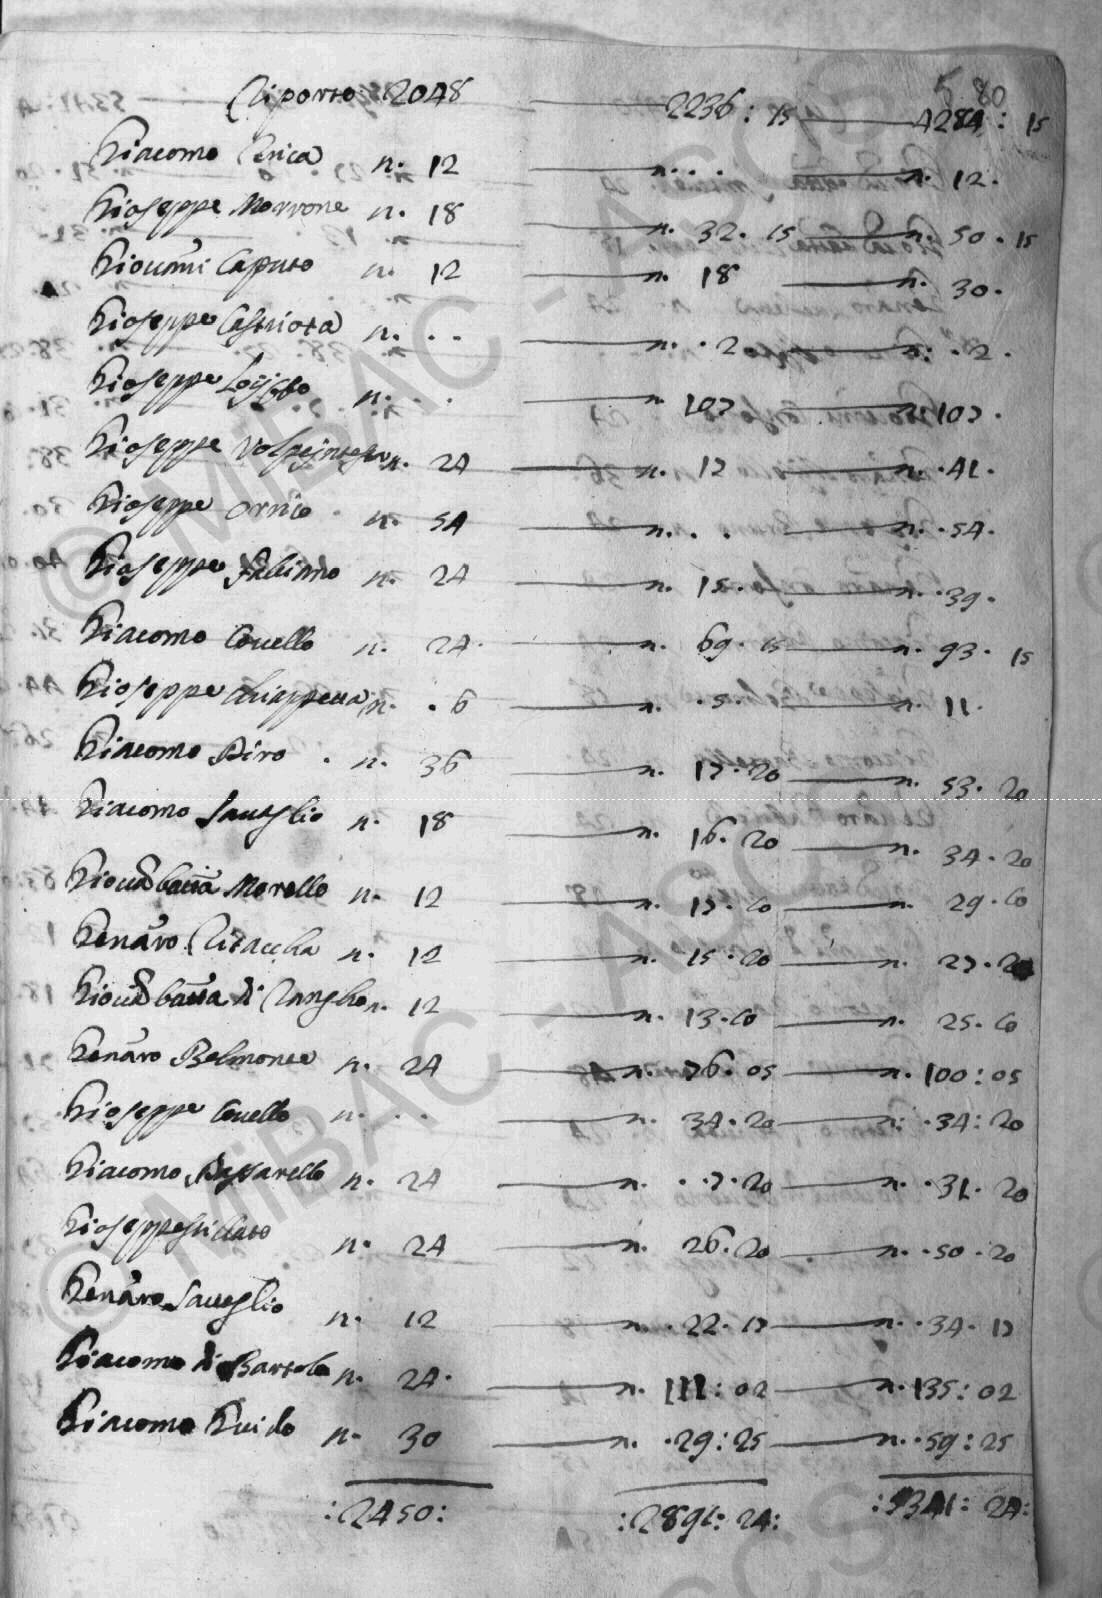 5.80
Riporto: 2048 2236 : 15 4284 : 15
Giacomo n. 12 n. . . n. 12.
Gioseppe Morrone n. 18 n. 32. 15 n. 50. 15
Giouãni Caputo n. 12 n. 18 n. 30.
Gioseppe Castriota n. . . n. . 2 n. . 2.
Gioseppe n. . . n. 107 n. 107.
Gioseppe Volpintesta n. 24 n. 17 n. 41.
Gioseppe Orrico n. 54 n. . . n. 54.
Gioseppe Fabiano n. 24 n. 15. n. 39.
Giacomo Couello n. 24. n. 69. 15 n. 93. 15
Gioseppe Chiappetta n. . 6 n. . 5. n. 11.
Giacomo Piro . n. 36 n. 17. 20 n. 53. 20
Giacomo Saueglio n. 18 n. 16. 20 n. 34. 20
Giouã batta Morello n. 12 n. 17. 10 n. 29. 10
Genãro n. 12 n. 15. 20 n. 27. 20
Giouã batta di n. 12 n. 13. 10 n. 25. 10
Genãro Belmonte n. 24 n. 76. 05 n. 100 : 05
Gioseppe Couello n. . . n. 34. 20 n. 34 : 20
Giacomo Passarello n. 24 n. . 7. 20 n. 31. 20
Gioseppe n. 24 n. 26. 20 n. 50. 20
Genãro Saueglio n. 12 n. 22. 17 n. 34. 17
Giacomo di Bartolo n. 24. n. 111 : 02 n. 135 : 02
Giacomo Guido n. 30 n. 29 : 25 n. 59 : 25
: 2450 : : 2891 : 24 : : 5341 : 24 :
© MiBAC - ASCS
© MiBAC - ASCS